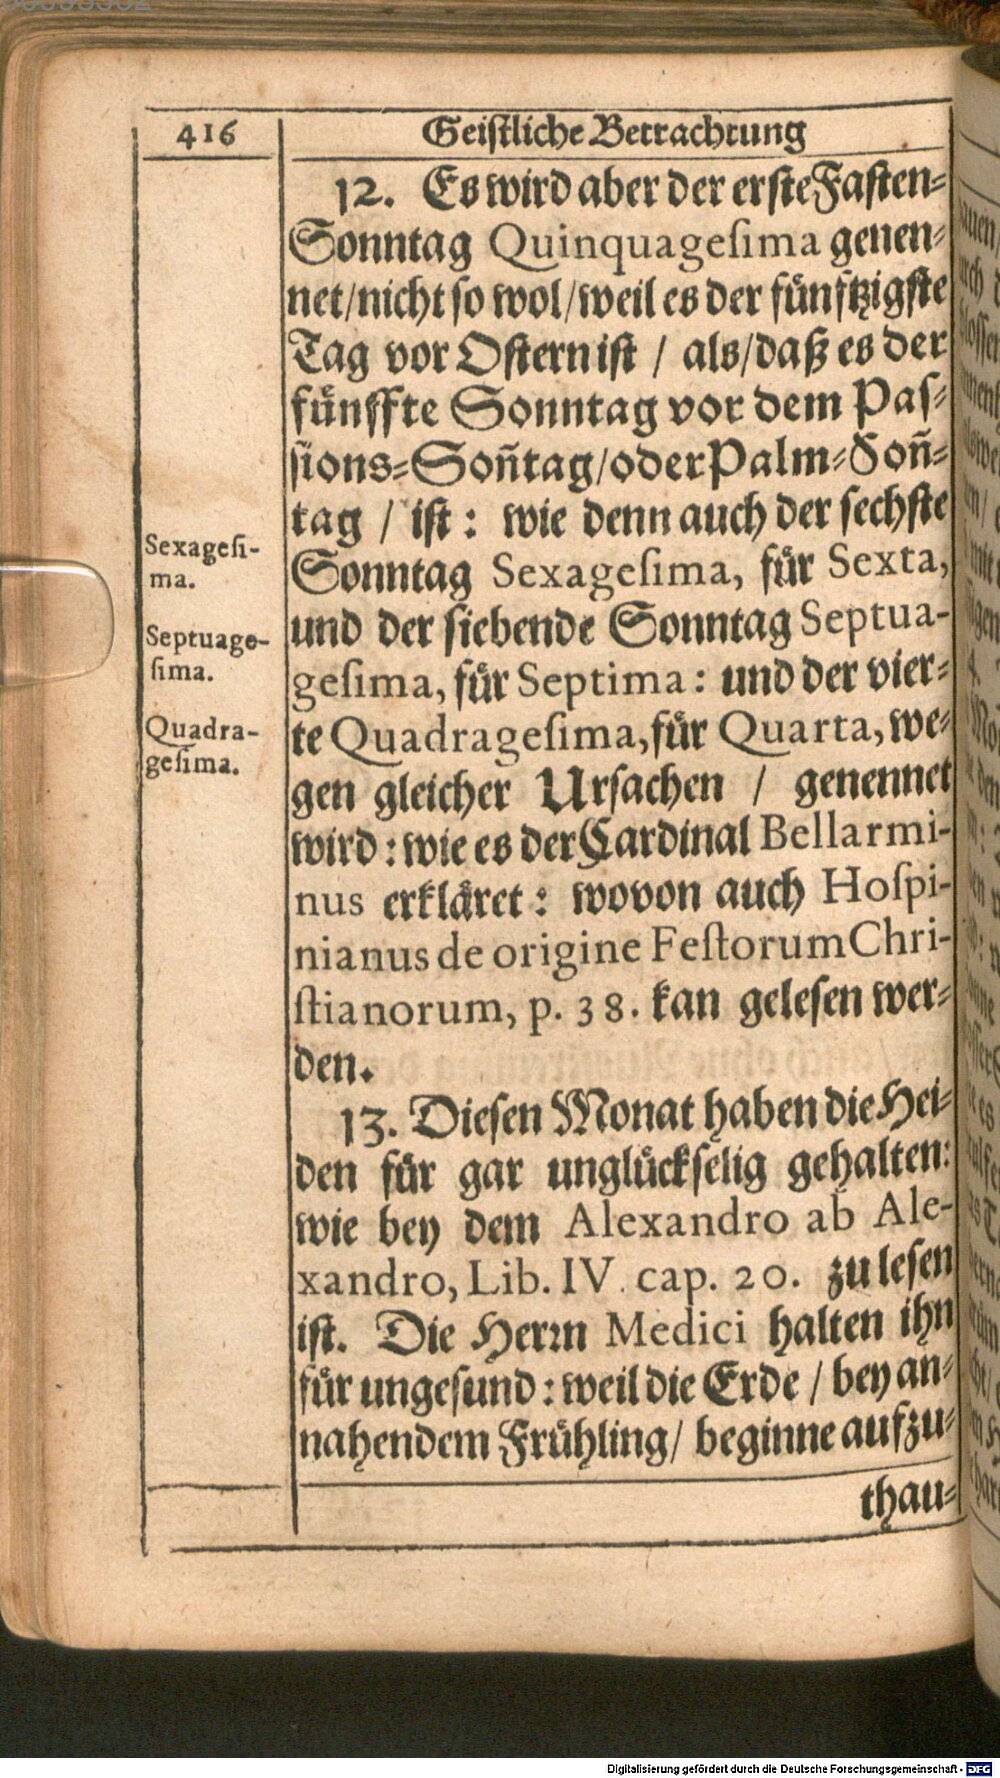 416
Geistliche Betrachtung
12. Es wird aber der erste Fasten=
Sonntag Quinquageſima genen=
net/nicht so wol/weil es der fünfftzigste
Tag vor Ostern ist / als/daß es der
fünffte Sonntag vor dem Pas=
sions=Son̄tag/oder Palm=Son̄=
tag / ist: wie denn auch der sechste
Sonntag Sexageſima, für Sexta,
und der siebende Sonntag Septua-
geſima, für Septima: und der vier=
te Quadrageſima, für Quarta, we=
gen gleicher Ursachen / genennet
wird: wie es der Cardinal Bellarmi-
nus erkläret: wovon auch Hoſpi-
nianus de origine Feſtorum Chri-
ſtianorum, p. 38. kan gelesen wer=
den.
Sexageſi-
ma.
Septuage-
ſima.
Quadra-
geſima.
13. Diesen Monat haben die Hei=
den für gar unglückselig gehalten:
wie bey dem Alexandro ab Ale-
xandro, Lib. IV. cap. 20. zu lesen
ist. Die Herꝛn Medici halten ihn
für ungesund: weil die Erde / bey an=
nahendem Frühling/ beginne aufzu=
thau=
Digitalisierung gefördert durch die Deutsche Forschungsgemeinschaft - DFG